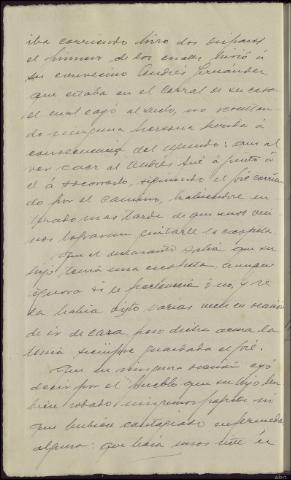 iba corriendo hizo dos disparos
el primero de los cuales hirió á
su convecino Andrés Fernández
que estaba en el corral de su casa
el cual cayó al suelo, no resultan-
do ninguna persona herida á
consecuencia del segundo: que al
ver caer al Andrés fué á junto á
él á socorrerlo, siguiendo el José corrien-
do por el camino, habiéndose en-
terado mas tarde de que unos veci-
nos lograron quitarle la escopeta
Que el declarante sabia que su
hijo tenía una escopeta, aunque
ignora si de procedencia ó no, y se
la habia visto varias veces en ocasión
de ir de caza pero dentro de casa la
tenia siempre guardada el José.
Que en ninguna ocasión oyó
decir por el pueblo que su hijo hu-
biera robado ningunos papeles ni
que hubiera contagiado enfermedad
alguna: que hacia unos siete